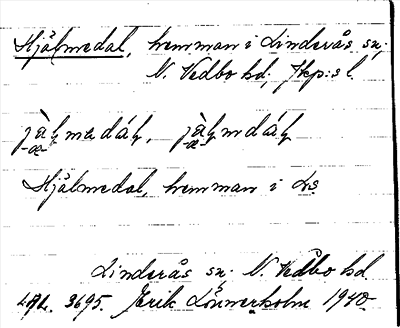 Hjälmedal, hemman i Linderås sn,
N. Vedbo hd, Jkp:s l.
Hjälmedal, hemman i Ls
Linderås sn. N. Vedbo hd.
3695. Erik Lönnerholm 1940